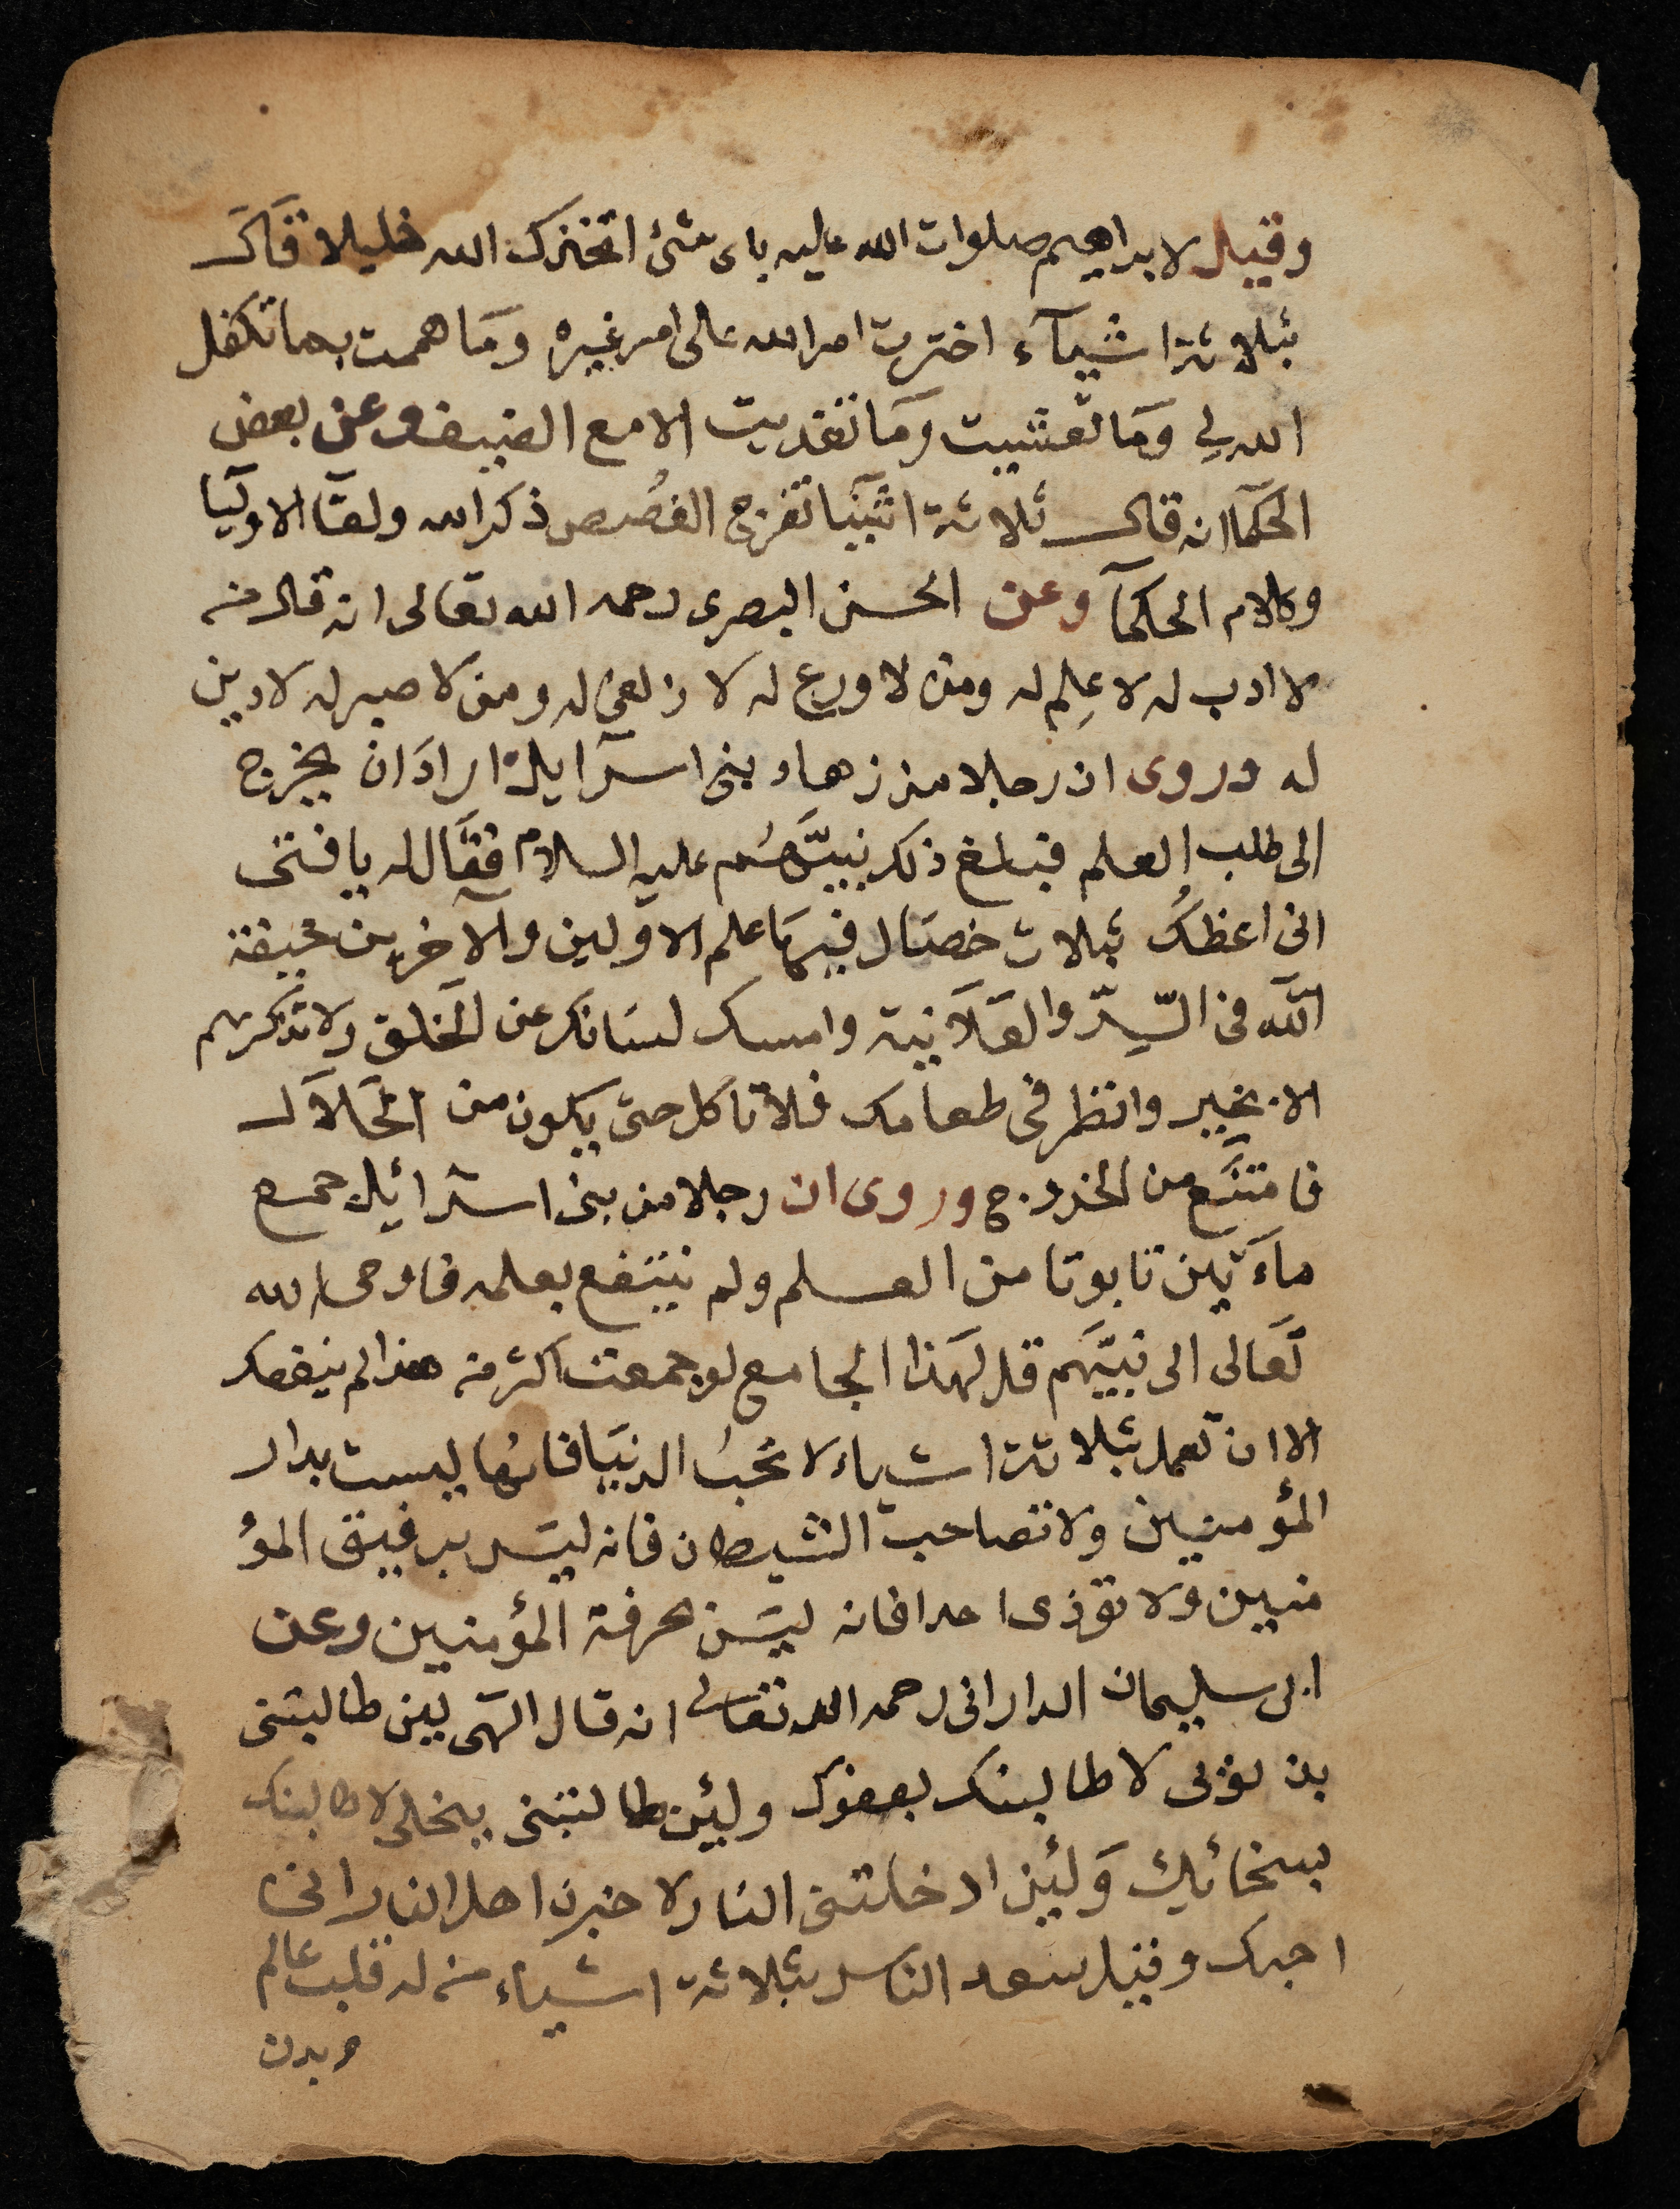 وقيل لابراهيم صلوات الله عليه باى شئ اتخذك الله خليلا قال
بثلاثة اشيآء اخترت امر الله على امر غيره ومَا هممت بما تكفل
الله لي وَمَا تعشيت ومَا تغديت الا مع الضيف وعن بعض
الحكمآ انه قال ثلاثة اشيَآ تفرج الغُصص ذكر الله ولقآ الاوليآ
وكلام الحكمآ وعن الحسن البصرى رحمه الله تعالى انه قال من
لا ادب له لا عِلم له ومن لا ورع له لا زلفى له ومن لا صبر له لا دين
له وروى ان رجلا من زهاد بنى اسرآايل ارادَ ان يخرج
الى طلب العلم فبلغ ذلك نبيَّهُم عليه السلام فقَال له يا فتى
انى اعظكُ بثلاث خصَال فيهَا علم الاوّلين والآخرين خيفة
اللّه فى السّرّ والعَلَانية وامسك لسَانك عن الخلق ولا تذكرهم
الا بخير وانظر فى طعامك فلا تاكل حتى يكون من الحَلَال
فامتنَع من الخروج وروى ان رجلا من بنى اسرائيل جمع
ماَءتين تابوتا من العلم ولم ينتفع بعلمه فاوحى الله
تَعَالى الى نبيّهَم قل لهَذا الجامع لو جمعت اكثر من هذا لم ينفعك
الا ان تعمل بثلاثة اشياء لا تحبُ الدنيَا فانها ليست بدار
المؤمنين ولا تصاحب الشيطان فانه ليسَ برفيق المؤ
منين ولا تؤذى احدا فانه ليسَ بحرفة المؤمنين وعن
ابى سليمان الدارانى رحمه الله تعالى انه قال الهى لين طالبتنى
بذنوبى لاطالبنك بعفوك ولئن طالبتنى ببخلى لاطالبنك
بسخائك وَلئن ادخلتنى النار لاخبرن اهل النار انى
احبك وقيل اسعد الناس بثلاثة اشياء من له قلب عالم
وبدن